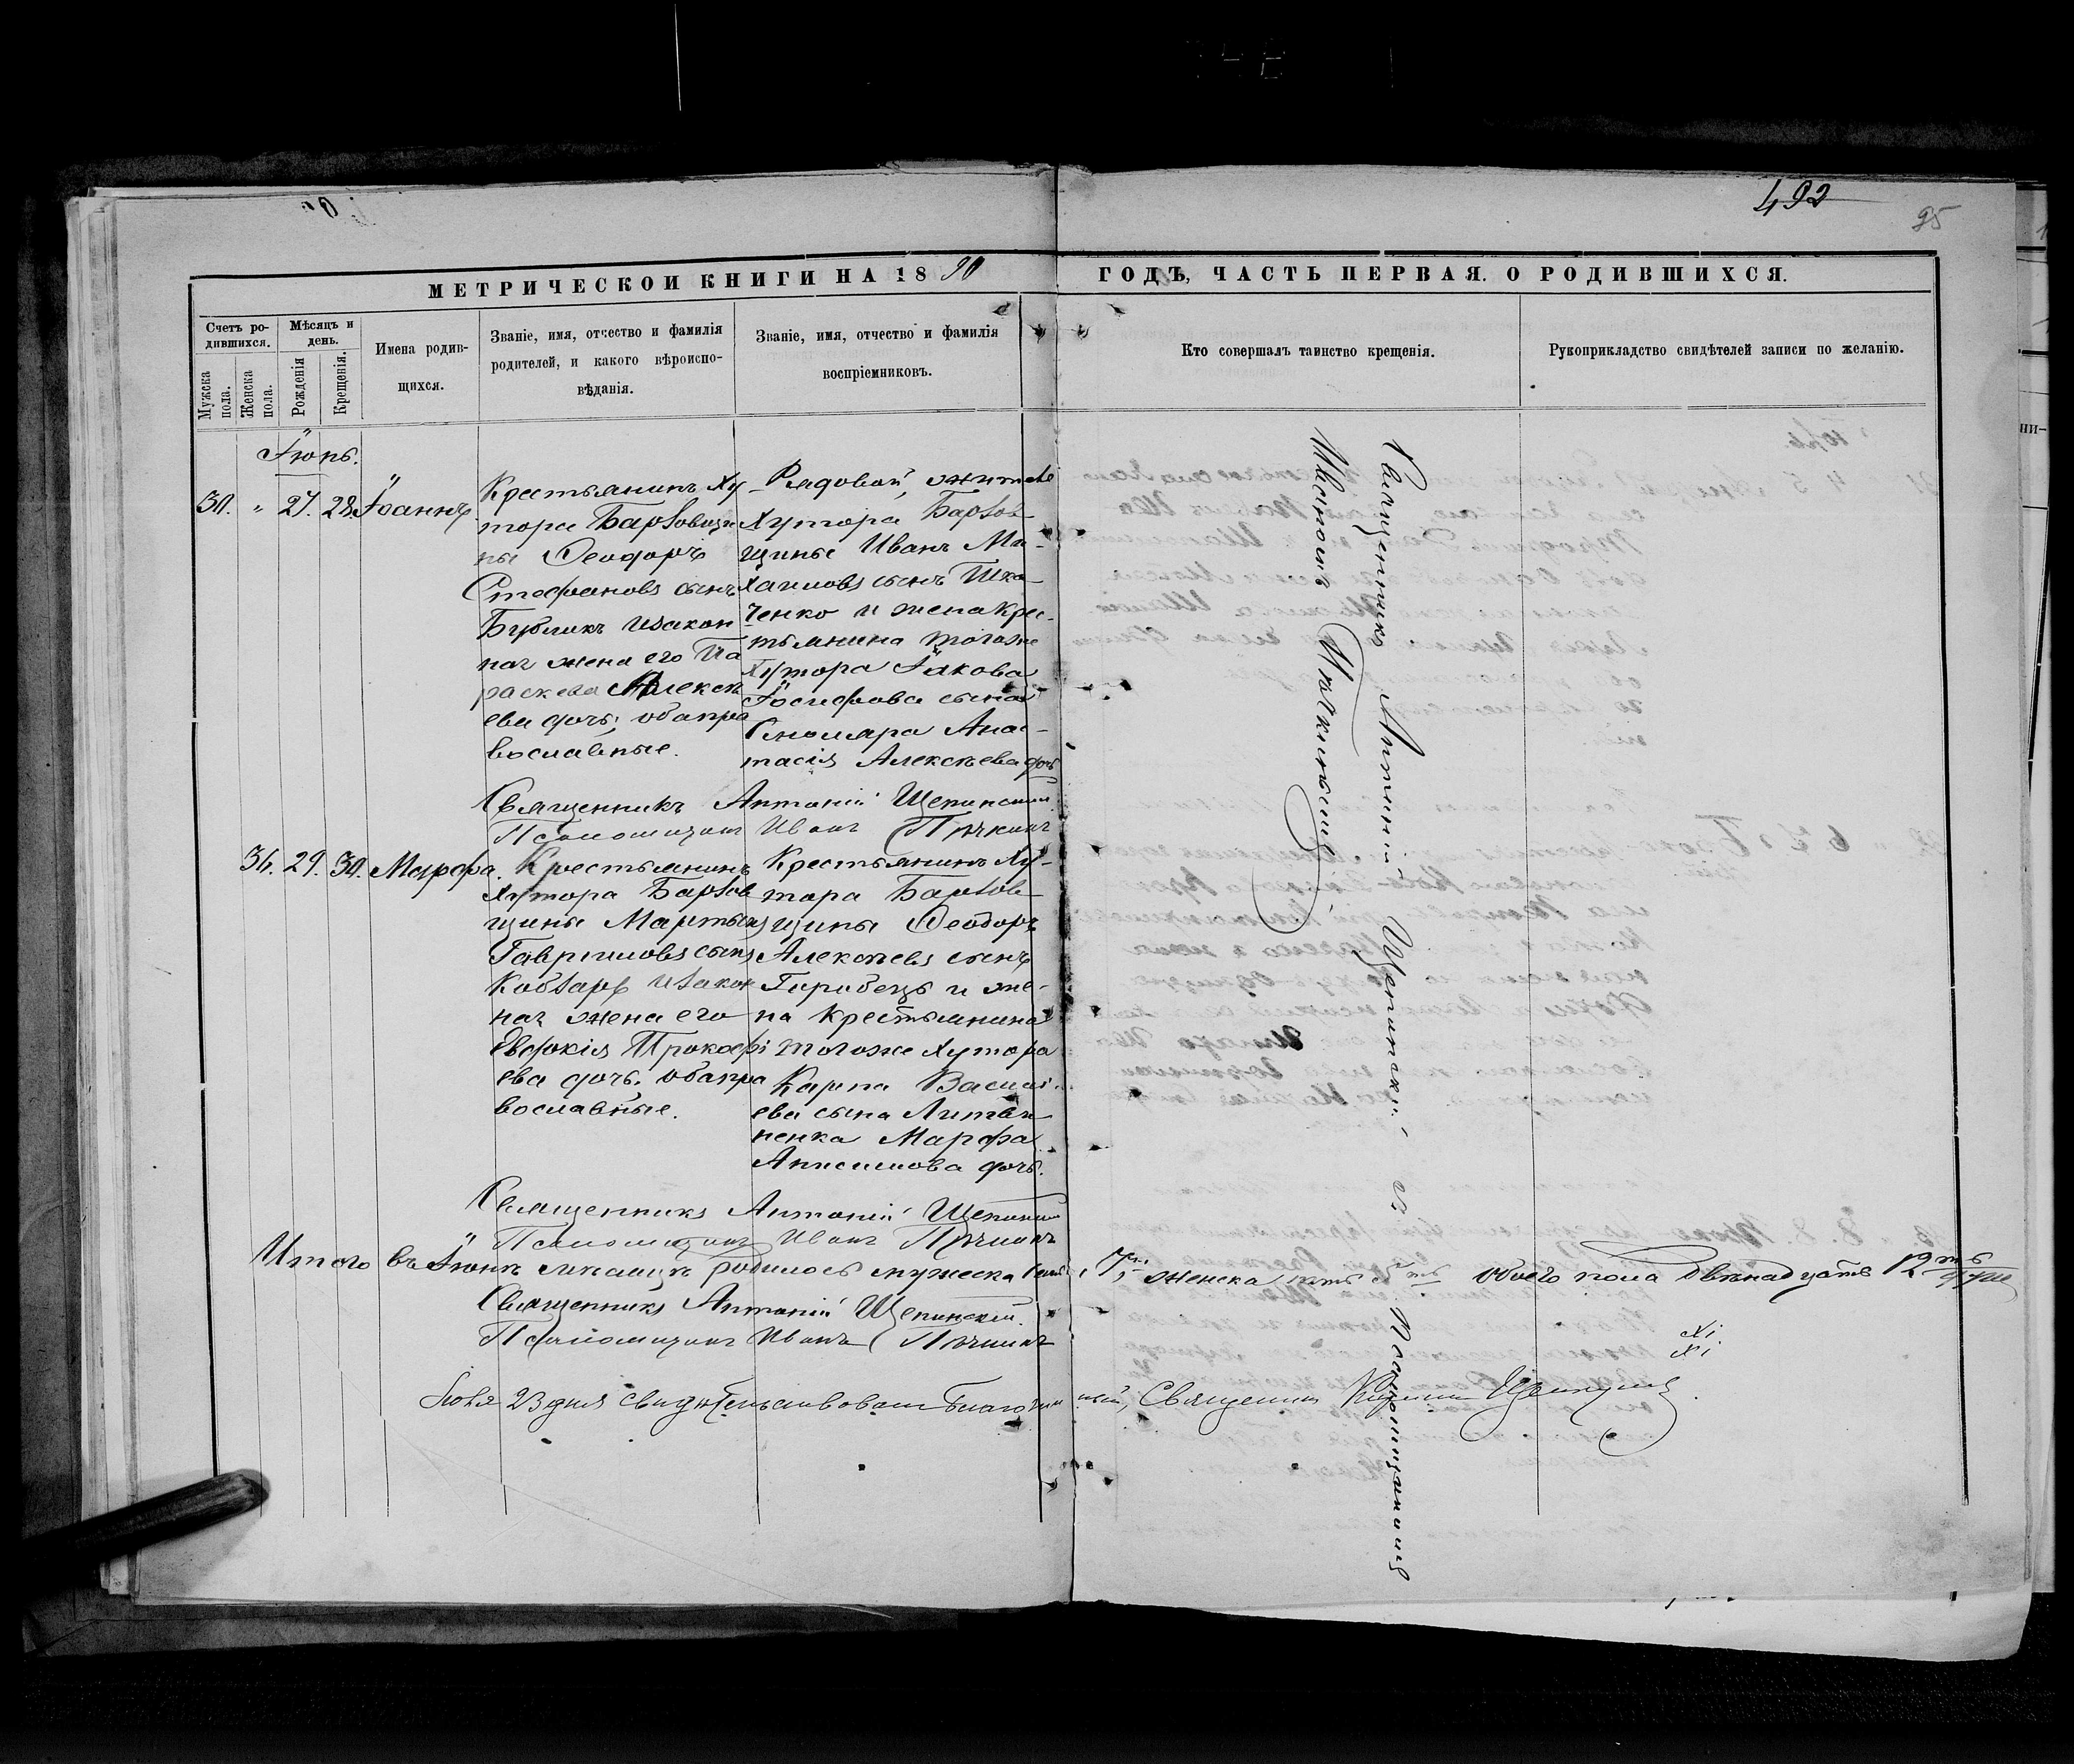 492
95
МЕТРИЧЕСКОЙ КНИГИ НА 1890 ГОДЪ, ЧАСТЬ ПЕРВАЯ. О РОДИВШИХСЯ.
Счетъ ро-
дившихся.
Мужска
пола.
Женска
пола.
Мѣсяцъ и
день.
Рожденія
Крещенія.
Имена родив-
шихся.
Званіе, имя, отчество и фамилія
родителей, и какого вѣроиспо-
вѣданія.
Званіе, имя, отчество и фамилія
воспріемниковъ.
Кто совершалъ таинство крещенія.
Рукоприкладство свидѣтелей записи по желанію.
Іюнь.
30. " 27. 28. Іоаннъ
Крестьянинъ Ху
тора Барвовщи
ны Ѳеодоръ
Стефановъ сынъ
Бубликъ и закон
ная жена его Па
раскева Алексѣ
ева дочь, оба пра
вославные.
Рядовой, житель
Хутора Барвов-
щины Иванъ Ми-
хаиловъ сынъ
ченко и жена Крес-
тьянина тогоже
Хутора Іакова
Іосифова сына
Столяра Анас-
тасія Алексѣева дочь
Священникъ Антоній Щепинскій
Псаломщикъ Иванъ
36. 29. 30. Марфа.
Крестьянинъ
Хутора Барвов
щины Мартинъ
Гавриловъ сынъ
Кобзарь и закон
ная жена его
Евфокія Прокофі
ева дочь. оба пра
вославные.
Крестьянинъ Ху-
тора Барвов-
щины Ѳеодоръ
Алексѣевъ сынъ
Горобецъ и же-
на крестьянина
тогоже Хутора
Карпа Василі-
ева сына Литви-
ненка Марфа
Анисимова дочь.
Священникъ Антоній Щепинскій
Псаломщикъ Иванъ
Итого въ Іюнѣ мѣсяцѣ родилось мужеска семь, 7, женска пять 5ть обоего пола двѣнадцать 12ть душъ
Священникъ Антоній Щепинскій.
Псаломщикъ Иванъ
23 дня свидѣтельствовалъ Благочинный, Священникъ
Священникъ Антоній Щепинскій съ Псаломщикомъ
Иваномъ